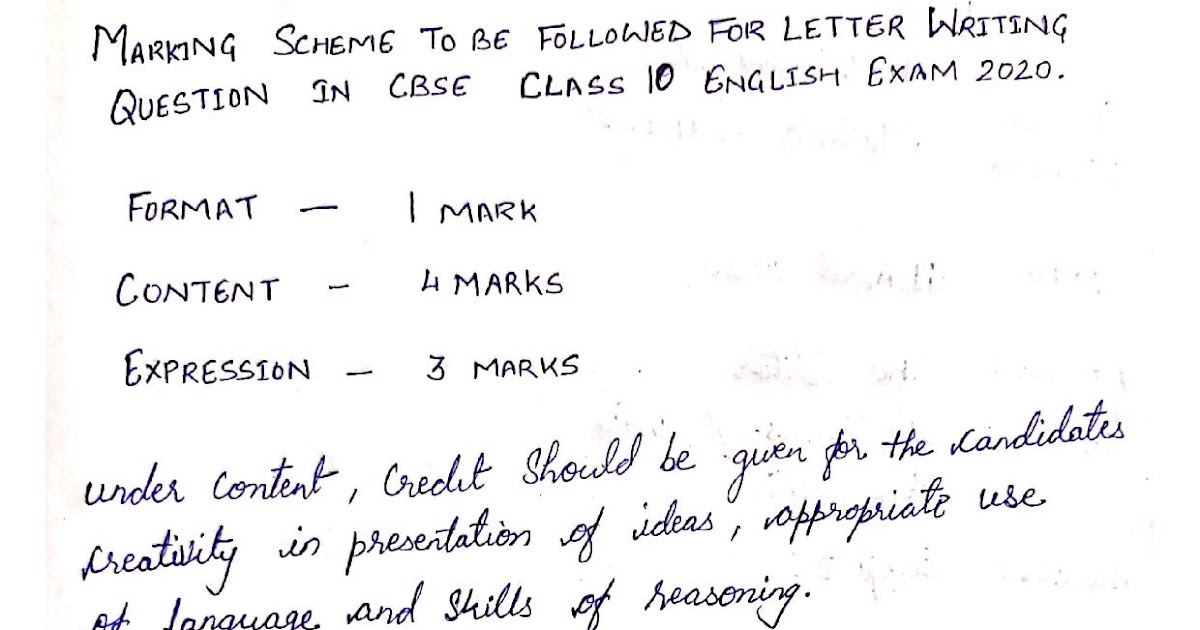 MARKING SCHEME TO BE FOLLOWED FOR LETTER WRITING
QUESTION IN CBSE CLASS 10 ENGLISH EXAM 2020.
FORMAT — 1 MARK
CONTENT - 4 MARKS
EXPRESSION — 3 MARKS
under content, credit should be given for the candidates
creativity in presentation of ideas, appropriate use
of language and skills of reasoning.